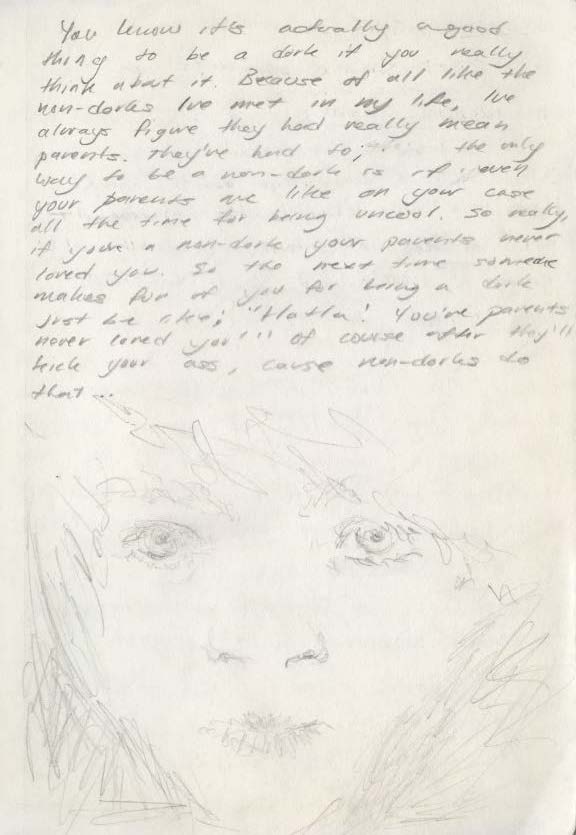 You know it's actually a good
thing to be a dork if you really
think about it. Because of all like the
non-dorks Ive met in my life, Ive
always figure they had really mean
parents. They've had to; the only
way to be a non-dork is if even
your parents are like on your case
all the time for being uncool. So really,
if you're a non-dork your parents never
loved you. So the next time someone
makes fun of you for being a dork
just be like; "HaHa! You're parents
never loved you!" Of course after they'll
kick your ass, cause non-dorks do
that...